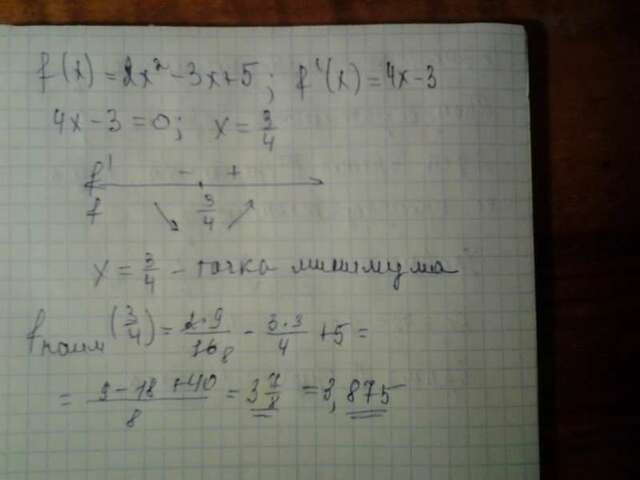 f(x) = 2x² - 3x + 5; f'(x) = 4x - 3
4x - 3 = 0; x = 3/4
f' - +
f 3/4 ↘ ↗
x = 3/4 - точка минимума
fнаим (3/4) = 2·9/16 8 - 3·3/4 + 5 =
= 9 - 18 + 40/8 = 3 7/8 = 3,875